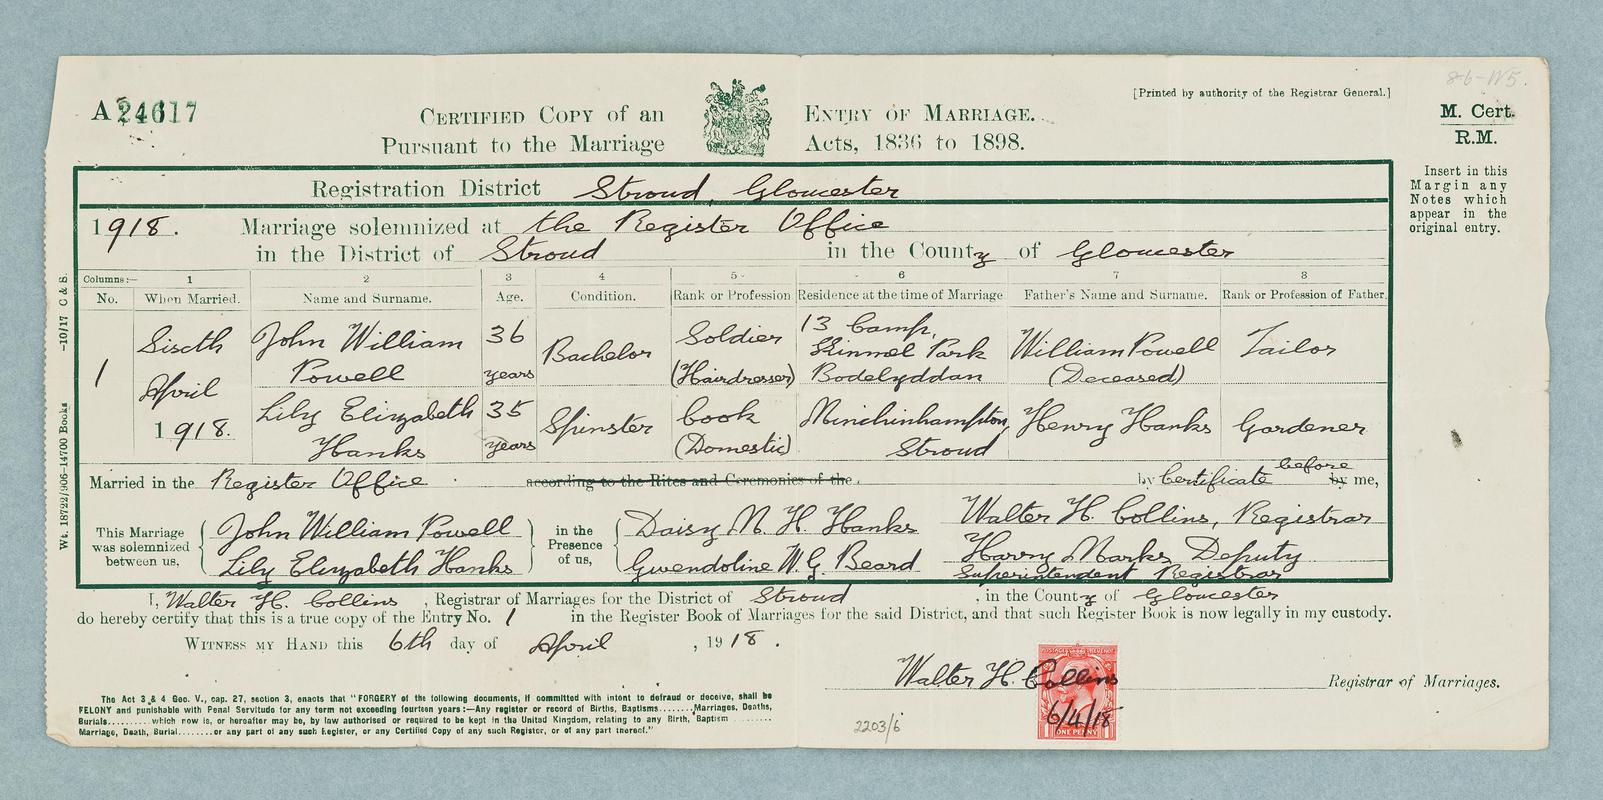 8-6-W5.
[Printed by authority of the Registrar General.]
A 24617
CERTIFIED COPY of an ENTRY OF MARRIAGE.
Pursuant to the Marriage Acts, 1836 to 1898.
M. Cert.
R.M.
Insert in this
Margin any
Notes which
appear in the
original entry.
Registration District Stroud, Gloucester
1918. Marriage solemnized at the Register Office
in the District of Stroud in the County of Gloucester
Columns:— 1 2 3 4 5 6 7 8
No. When Married. Name and Surname. Age. Condition. Rank or Profession Residence at the time of Marriage Father's Name and Surname. Rank or Profession of Father.
1 Sixth April 1918. John William Powell 36 years Bachelor Soldier (Hairdresser) 13 Camp, Kinmel Park Bodelyddan William Powell (Deceased) Tailor
Lily Elizabeth Hanks 35 years Spinster Cook (Domestic) Minchinhampton, Stroud Henry Hanks Gardener
Married in the Register Office according to the Rites and Ceremonies of the by Certificate before by me,
This Marriage was solemnized between us, John William Powell Lily Elizabeth Hanks in the Presence of us, Daisy M. H. Hanks Gwendoline W. G. Beard
Walter H. Collins, Registrar
Harry Marks Deputy
Superintendent Registrar
I, Walter H. Collins, Registrar of Marriages for the District of Stroud, in the County of Gloucester
do hereby certify that this is a true copy of the Entry No. 1 in the Register Book of Marriages for the said District, and that such Register Book is now legally in my custody.
WITNESS MY HAND this 6th day of April, 1918.
Walter H. Collins Registrar of Marriages.
POSTAGE REVENUE
6/4/18
ONE PENNY
2203/6
The Act 3 & 4 Geo. V., cap. 27, section 3, enacts that "FORGERY of the following documents, if committed with intent to defraud or deceive, shall be
FELONY and punishable with Penal Servitude for any term not exceeding fourteen years:—Any register or record of Births, Baptisms........Marriages, Deaths,
Burials.........which now is, or hereafter may be, by law authorised or required to be kept in the United Kingdom, relating to any Birth, Baptism .........
Marriage, Death, Burial........or any part of any such Register, or any Certified Copy of any such Register, or of any part thereof."
Wt. 18722/906-14700 Books -10/17 C & S.